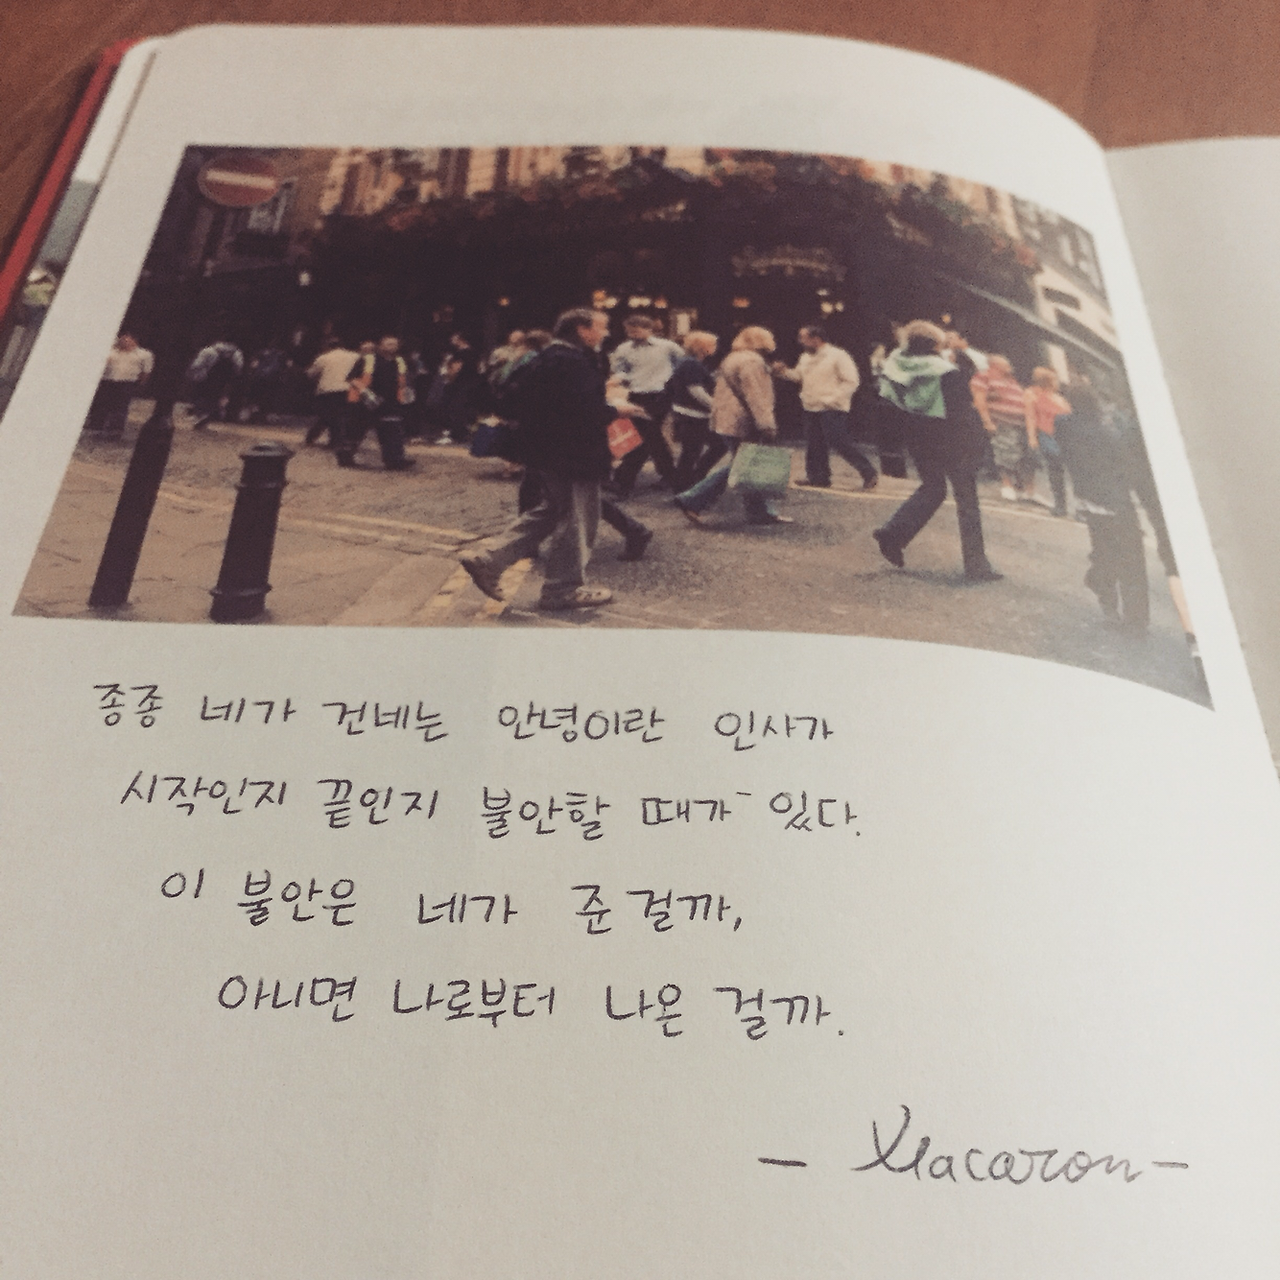 종종 네가 건네는 안녕이란 인사가
시작인지 끝인지 불안할 때가 있다.
이 불안은 네가 준 걸까,
아니면 나로부터 나온 걸까.
- Macaron -